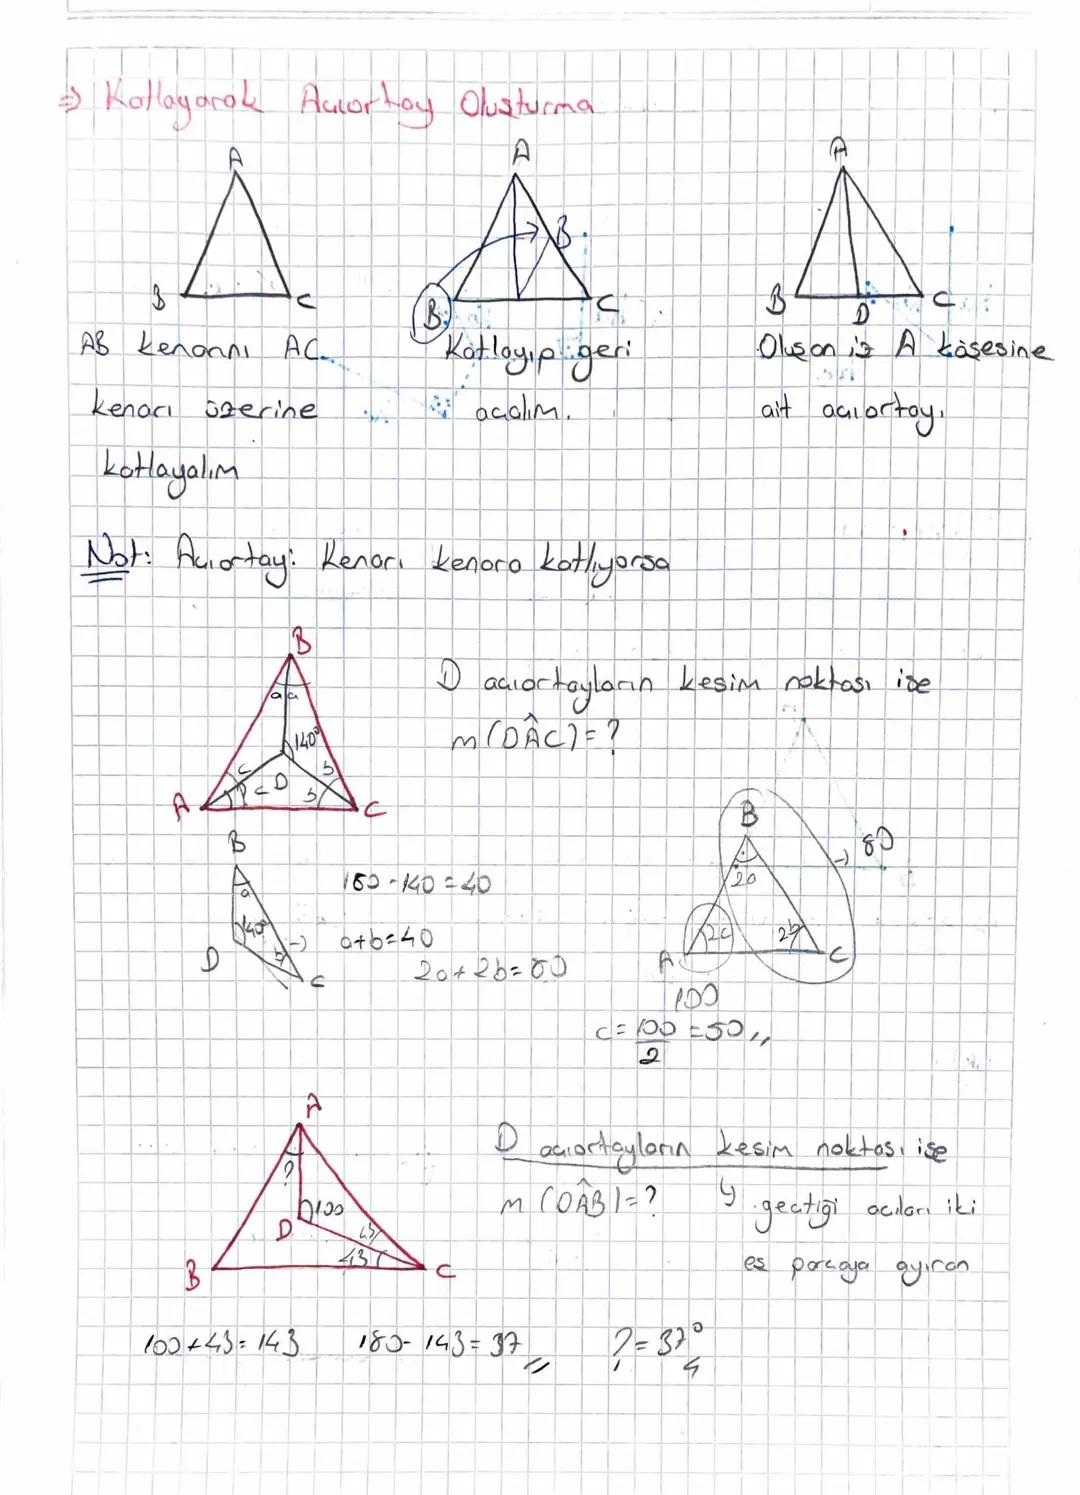 ⇒ Katlayarak Açıortay Oluşturma
A
B C
A
B
B C
A
B D C
AB kenarını AC
kenarı üzerine
katlayalım
Katlayıp geri
açalım.
Oluşan iz A köşesine
ait açıortay.
Not: Açıortay: Kenarı kenara katlıyorsa
B
a a
140°
c b
c D b
A C
D açıortayların kesim noktası ise
m(DÂC)=?
B
a
140°
b
D
C
180-140=40
→ a+b=40
2a+2b=80
B
2a
2c 2b
A C
→ 80
100
c=100/2=50,,
A
?
100
D
43
43
B C
D açıortayların kesim noktası ise
m(DÂB)=? ↳ geçtiği açıları iki
eş parçaya ayıran
100+43=143 180-143=37 ?=37°